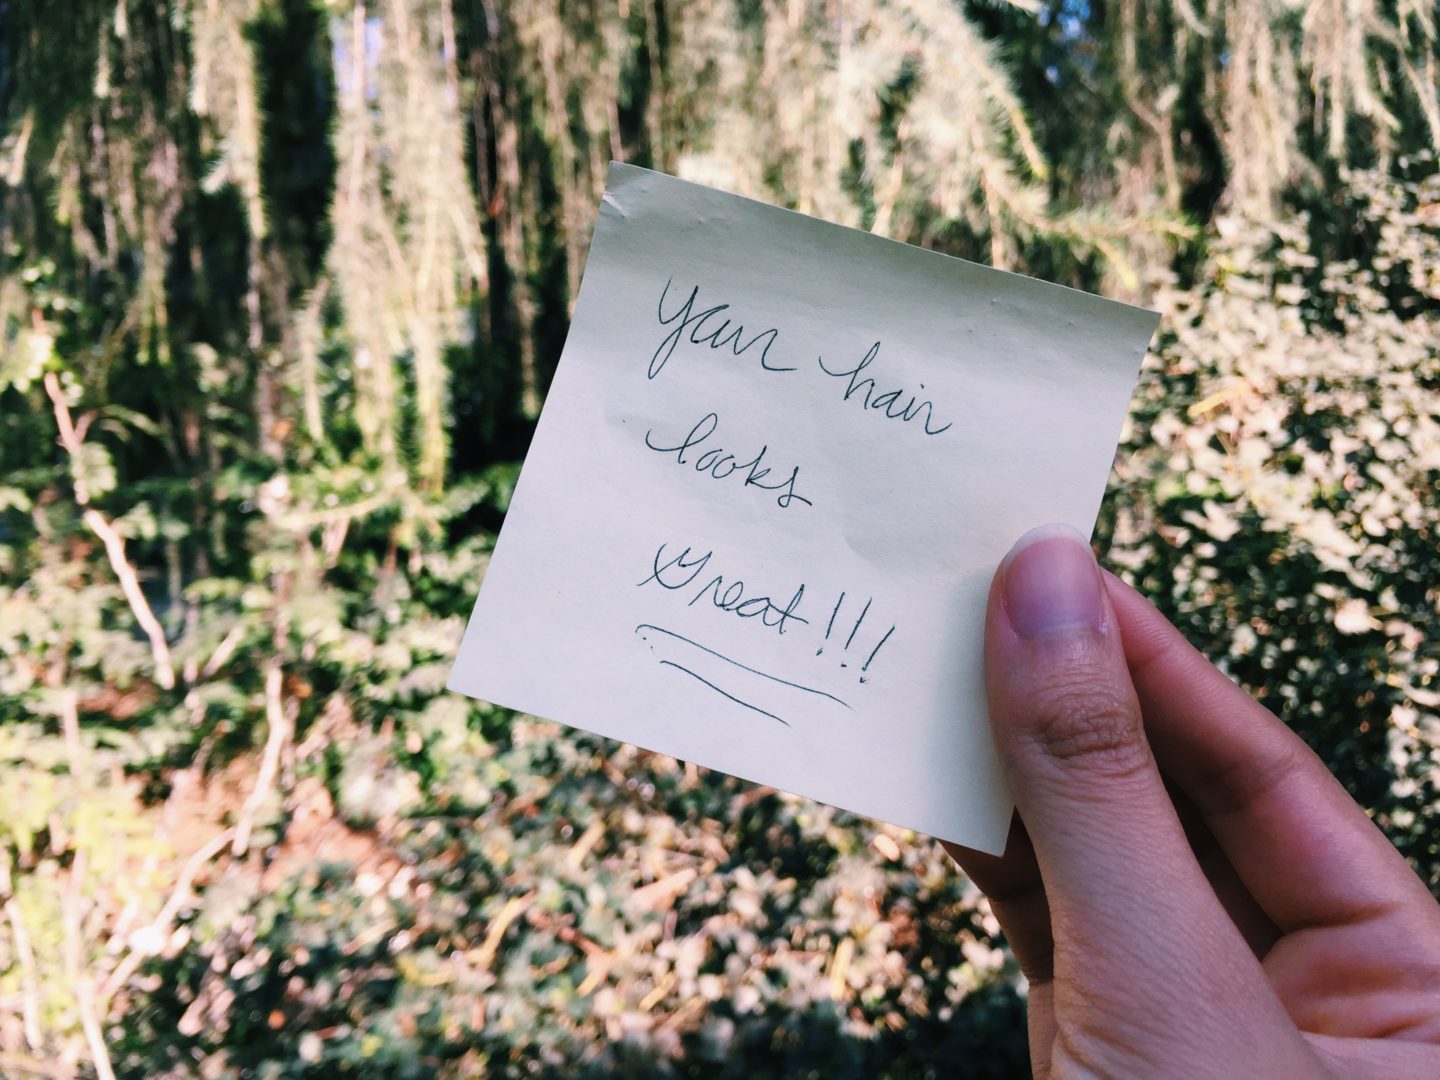 Your hair
looks
Great!!!